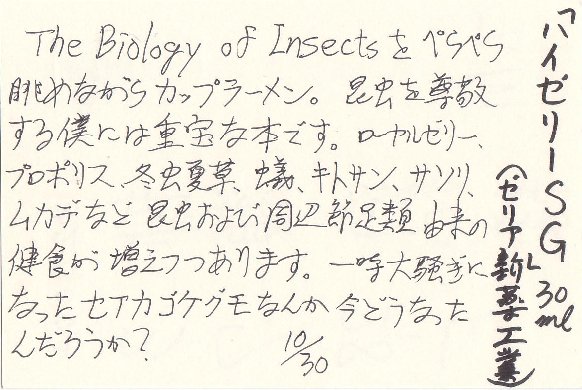 The Biology of Insectsをぺらぺら
眺めながらカップラーメン。昆虫を尊敬
する僕には重宝な本です。ローヤルゼリー、
プロポリス、冬虫夏草、蟻、キトサン、サソリ、
ムカデなど昆虫および周辺節足類由来の
健食が増えつつあります。一時大騒ぎに
なったセアカゴケグモなんか今どうなった
んだろうか?
10/30
「ハイゼリーSG 30ml
(ゼリア新薬工業)」